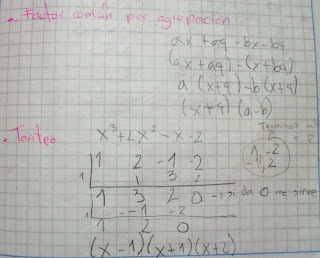 - Factor común por agrupación
ax + aq - bx - bq
(ax + aq) - (x + bq)
a (x + q) - b (x + q)
(x + q) (a - b)
- Tanteo
x³ + 2x² - x - 2
1 2 -1 -2
1 1 3 2
1 3 2 0 → si da 0 me sirve
1 -1 -2
1 2 0
(x - 1) (x + 1) (x + 2)